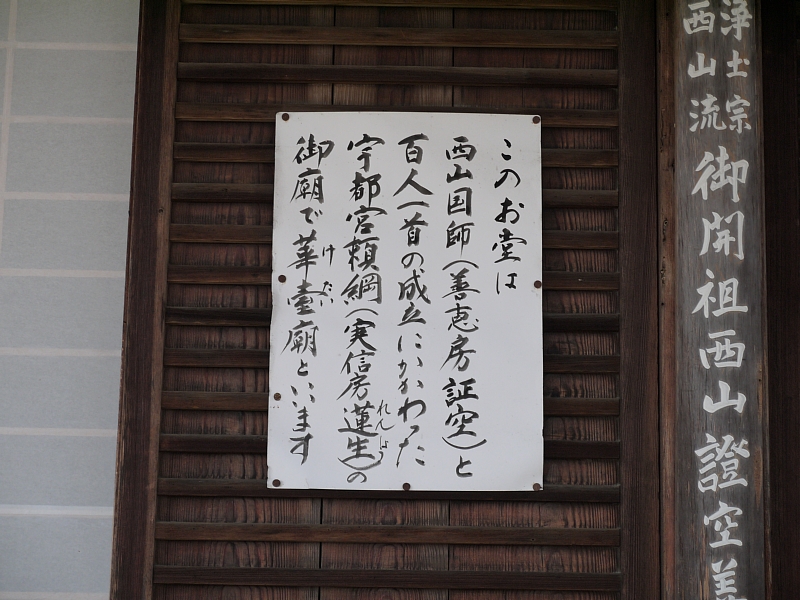 浄土宗
西山流
御開祖西山證空善
このお堂は
西山国師(善恵房証空)と
百人一首の成立にかかわった
宇都宮頼綱(実信房蓮生)の
れんしょう
御廟で華臺廟といいます
けだい